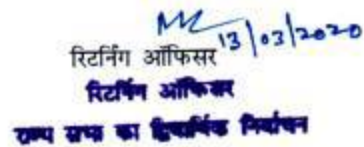 13/03/2020
रिटर्निंग ऑफिसर
रिटर्निंग ऑफिसर
राज्य सभा का द्विवार्षिक निर्वाचन